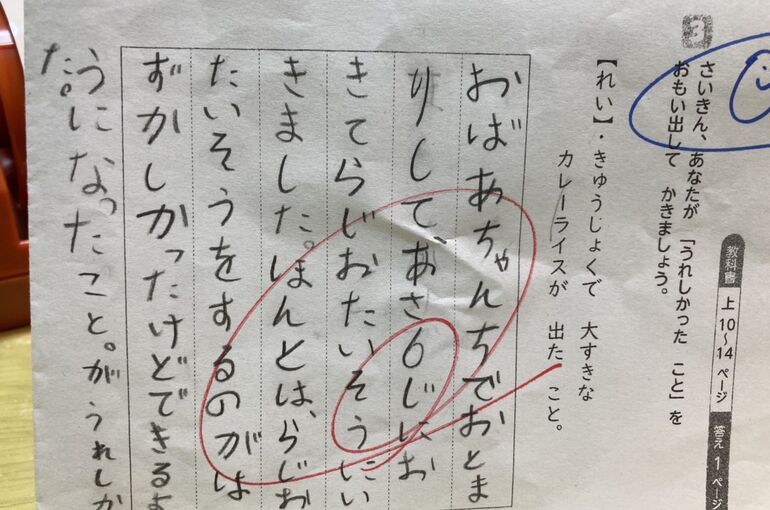 さいきん、あなたが 「うれしかった こと」を
おもい出して かきましょう。
教科書 上 10~14 ページ 答え 1 ページ
【れい】・きゅうしょくで 大すきな
カレーライスが 出た こと。
おばあちゃんちでおとま
りして、あさ6じにお
きてらじおたいそうにい
きました。ほんとは、らじお
たいそうをするのがは
ずかしかったけどできるよ
うになったこと。がうれしか
た。